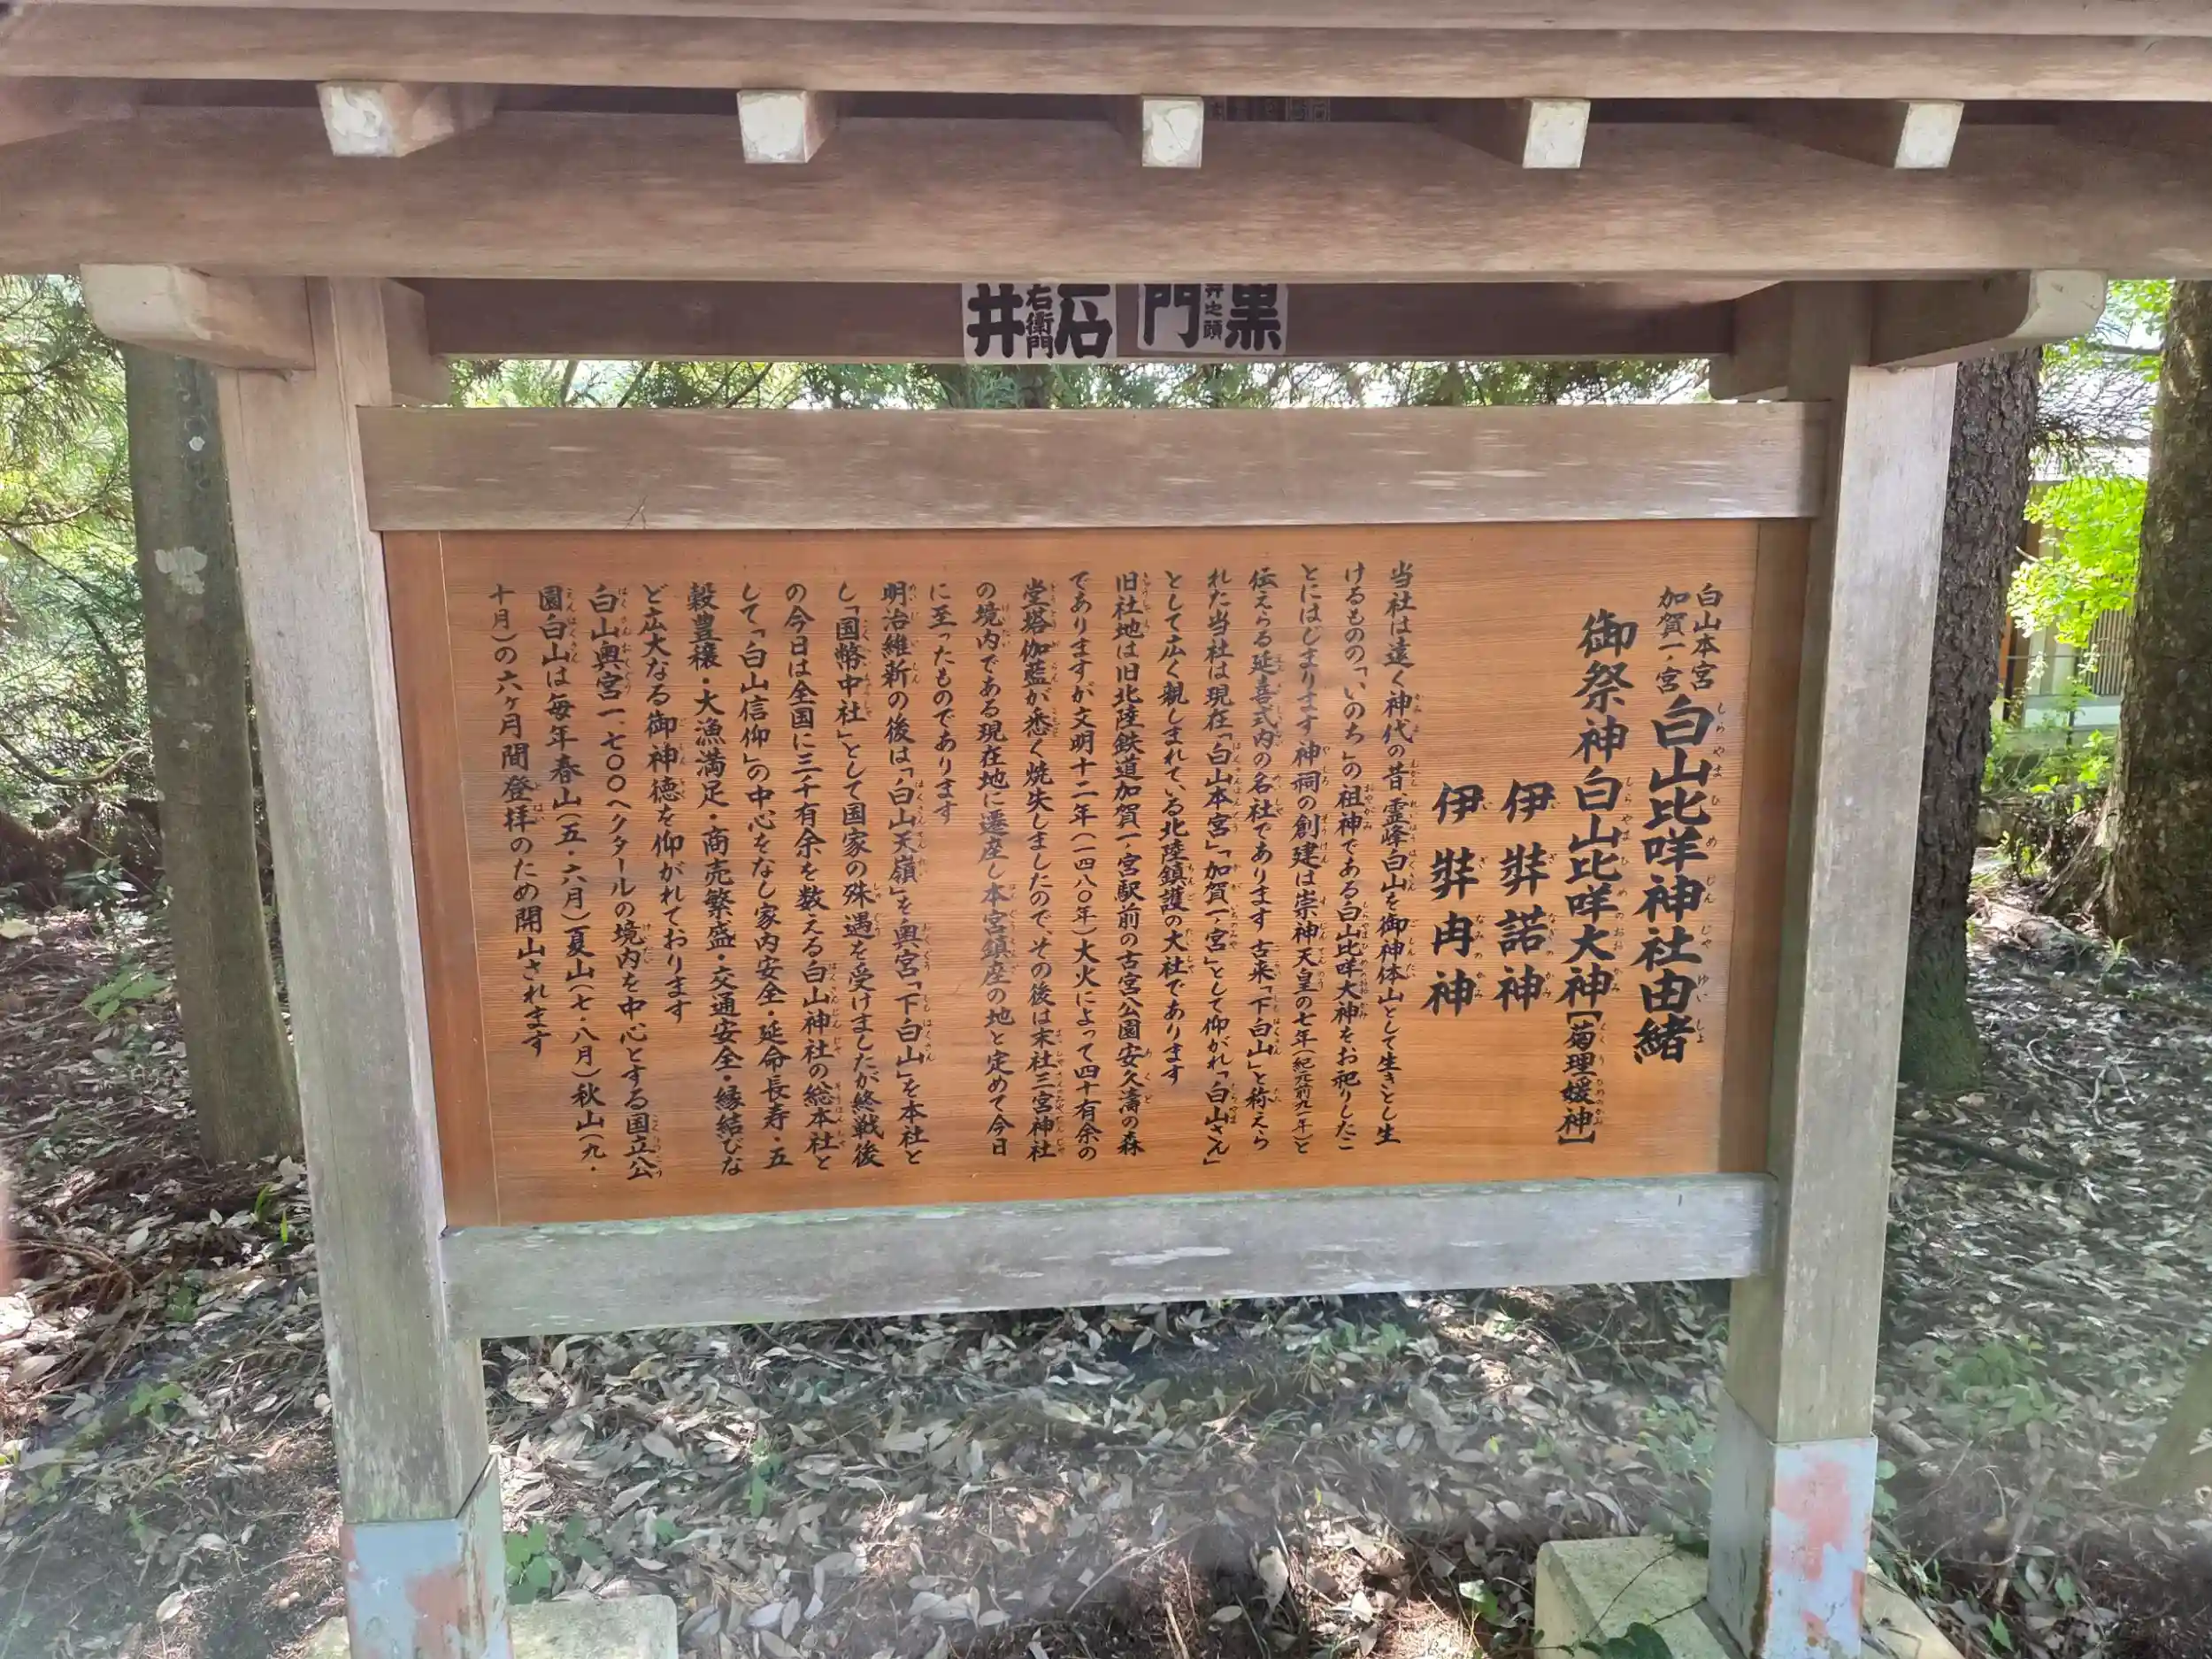 黒門
井之頭
石井
右衛門
白山本宮
加賀一ノ宮
白山比咩神社由緒
御祭神 白山比咩大神【菊理媛神】
伊弉諾神
伊弉冉神
当社は遠く神代の昔、霊峰白山を御神体山として生きとし生
けるものの「いのち」の祖神である白山比咩大神をお祀りしたこ
とにはじまります 神祠の創建は崇神天皇の七年(紀元前九一年)と
伝えらる延喜式内の名社であります 古来「下白山」と称えら
れた当社は現在「白山本宮」「加賀一ノ宮」として仰がれ「白山さん」
として広く親しまれている北陸鎮護の大社であります
旧社地は旧北陸鉄道加賀一ノ宮駅前の古宮公園安久濤の森
でありますが文明十二年(一四八〇年)大火によって四十有余の
堂塔伽藍が悉く焼失しましたので、その後は末社三宮神社
の境内である現在地に遷座し本宮鎮座の地と定めて今日
に至ったものであります
明治維新の後は「白山天嶺」を奥宮「下白山」を本社と
し「国幣中社」として国家の殊遇を受けましたが終戦後
の今日は全国に三千有余を数える白山神社の総本社と
して「白山信仰」の中心をなし家内安全・延命長寿・五
穀豊穣・大漁満足・商売繁盛・交通安全・縁結びな
ど広大なる御神徳を仰がれております
白山奥宮一、七〇〇ヘクタールの境内を中心とする国立公
園白山は毎年春山(五・六月)夏山(七・八月)秋山(九・
十月)の六ヶ月間登拝のため開山されます